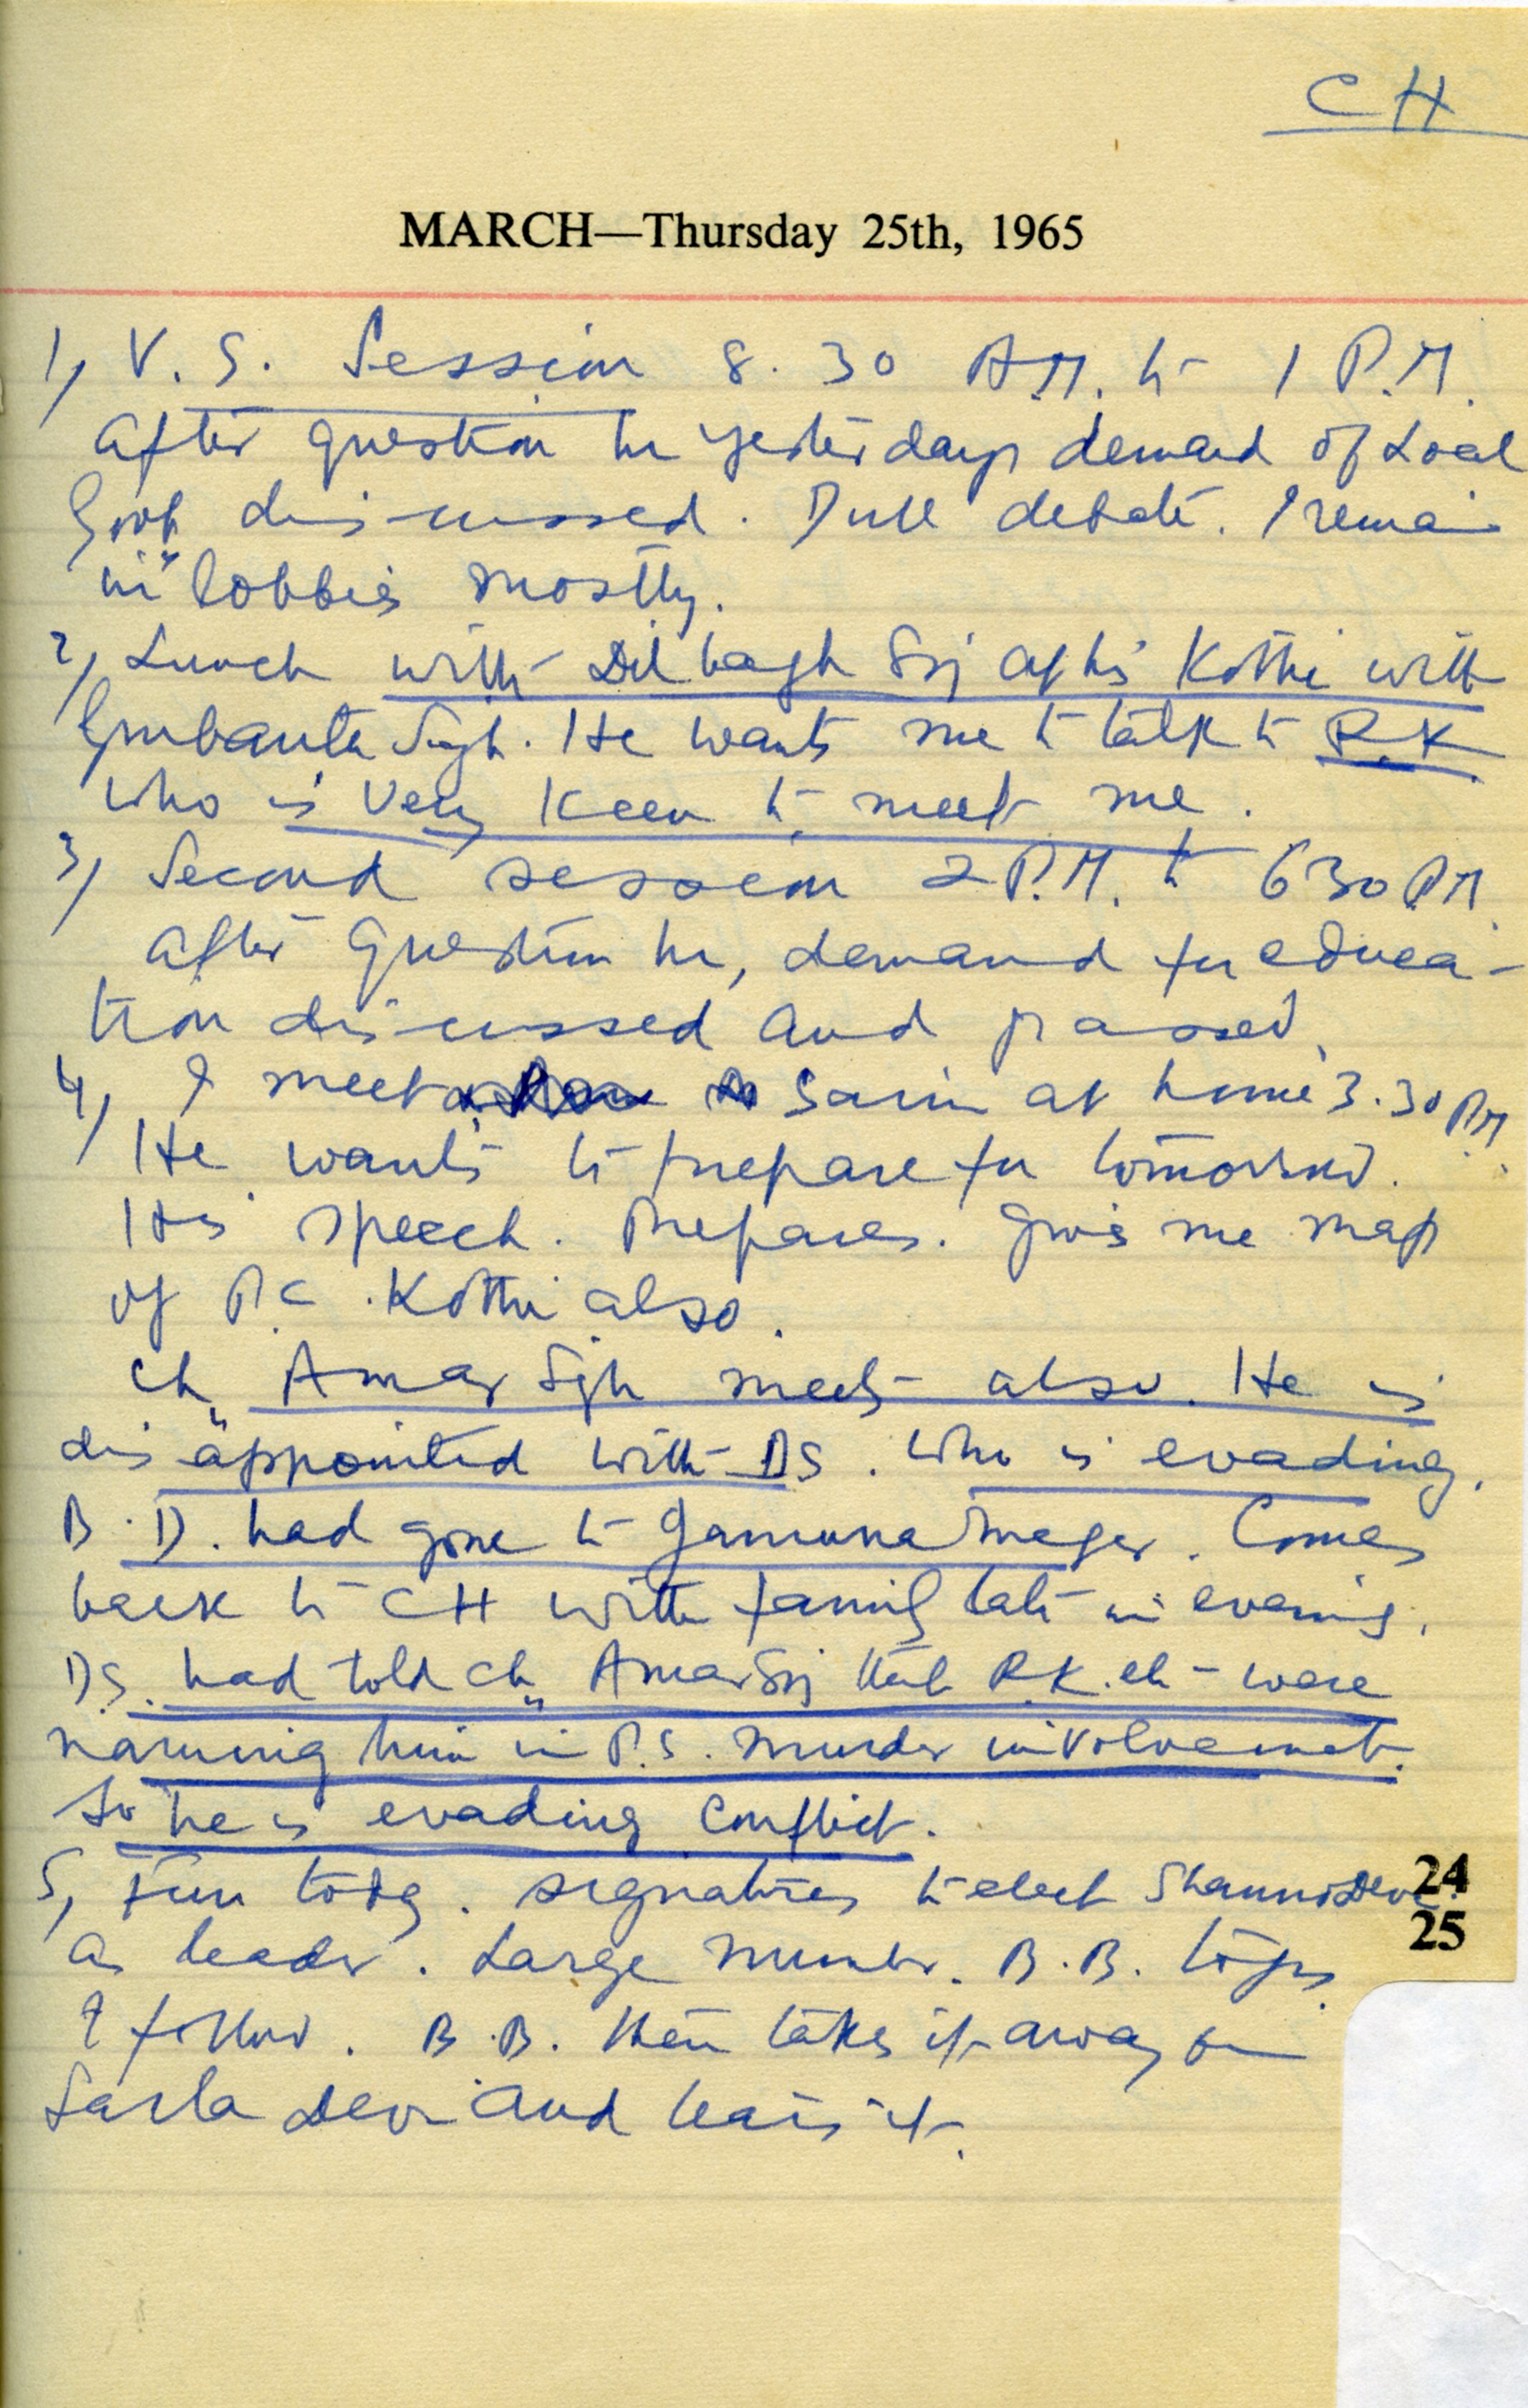 CH
MARCH—Thursday 25th, 1965
1, V. S. Session 8.30 A.M. to 1 P.M.
After question hr yesterdays demand of Local
Govt discussed. Dull debate. I remain
in lobbies mostly.
2, Lunch with Dilbagh Sg at his Kothi with
Gurbanta Singh. He wants me to talk to R.K.
who is very keen to meet me.
3, Second session 2 P.M. to 630 P.M.
After Question hr, demand for educa-
tion discussed and passed.
4, I meet Sarin at home 3.30 P.M.
He wants to prepare for tomorrow.
His speech. Prepares. Gives me map
of P.C. Kothi also.
Ch. Amar Sigh meets also. He is
disappointed with DS. Who is evading.
B.D. had gone to Jamuna Nager. Comes
back to CH with family late in evening.
DS. had told Ch. Amar Sg that R.K. etc were
naming him in P.S. murder involvement.
So he is evading conflict.
5, Fun today. Signatures to elect Shanno Devi
24
25
as leader. Large number. B.B. tops
I follow. B.B. then takes it away from
Sarla Devi and tears it.